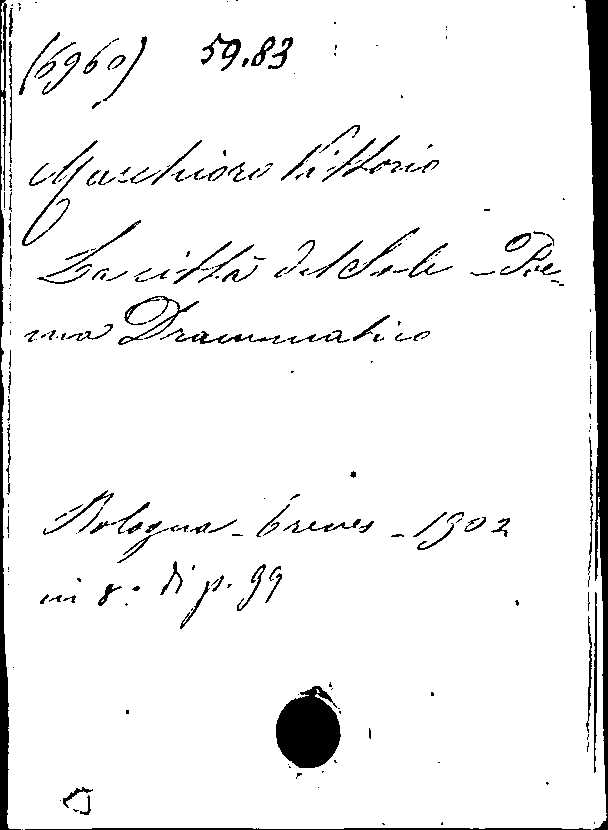 (6960) 59.83
Macchioro Vittorio
La città del Sole - Poe-
ma Drammatico
Bologna - Treves - 1902
in 8.° di p. 99